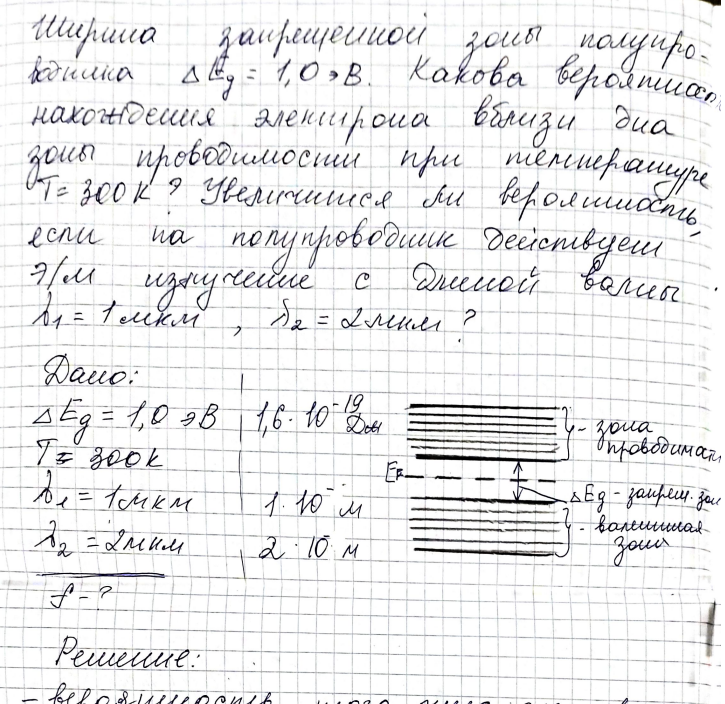 Ширина запрещенной зоны полупро-
водника ΔEg = 1,0 эВ. Какова вероятност
нахождения электрона вблизи дна
зоны проводимости при температуре
T = 300К? Увеличится ли вероятность,
если на полупроводник действует
э/м излучение с длиной волны
λ1 = 1 мкм, λ2 = 2 мкм?
Дано:
ΔEg = 1,0 эВ | 1,6·10⁻¹⁹ Дж
T = 300К
λ1 = 1 мкм | 1·10⁻ м
λ2 = 2 мкм | 2·10⁻ м
f - ?
- зона
проводимост
EF
ΔEg - запрещ. зон
- валентная
зона
Решение:
- вероятность того